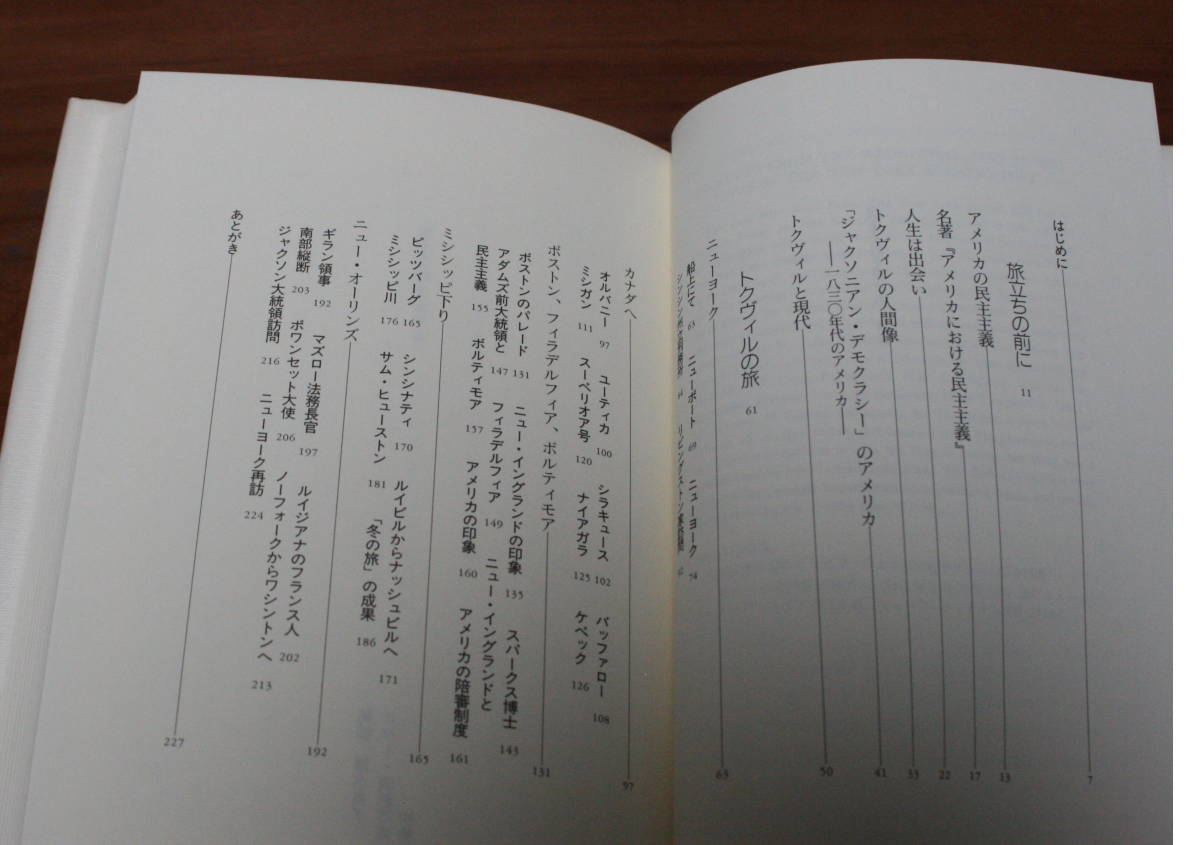 はじめに 7
旅立ちの前に 11
アメリカの民主主義 13
名著『アメリカにおける民主主義』 17
人生は出会い 22
トクヴィルの人間像 33
「ジャクソニアン・デモクラシー」のアメリカ 41
――一八三〇年代のアメリカ――
トクヴィルと現代 50
トクヴィルの旅 61
ニューヨーク 63
船上にて 63 ニューポート 69 ニューヨーク 74
カナダへ 97
オルバニー 97 ユーティカ 100 シラキュース 102 バッファロー 108
ミシガン 111 スーペリオア号 120 ナイアガラ 125 ケベック 126
ボストン、フィラデルフィア、ボルティモア 131
ボストンのパレード 131 ニュー・イングランドの印象 135 スパークス博士 143
アダムズ前大統領と 147 フィラデルフィア 149 ニュー・イングランドと
民主主義 155 ボルティモア 157 アメリカの印象 160 アメリカの陪審制度 161
ミシシッピ下り 165
ピッツバーグ 165 シンシナティ 170 ルイビルからナッシュビルへ 171
ミシシッピ川 176 サム・ヒューストン 181 「冬の旅」の成果 186
ニュー・オーリンズ 192
ギラン領事 192 マズロー法務長官 197 ルイジアナのフランス人 202
南部縦断 203 ポワンセット大使 206 ノーフォークからワシントンへ 213
ジャクソン大統領訪問 216 ニューヨーク再訪 224
あとがき 227